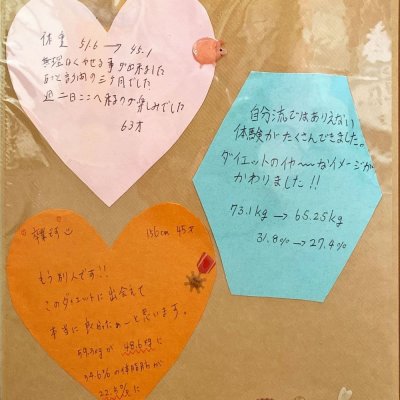 体重 51.6 → 45.1
無理なくやせる事が出来ました
あっと言う間の三ヶ月でした
週二日ここへ来るのが楽しみでした
63才
自分流ではありえない
体験がたくさんできました。
ダイエットのイヤ〜なイメージが
かわりました!!
73.1kg → 65.25kg
31.8% → 27.4%
卒業球 156cm 45才
もう別人です!!
このダイエットに出会えて
本当に良かったぁーと思います。
59.3kgが 48.6kgに
34.6%の体脂肪が
22.5%に